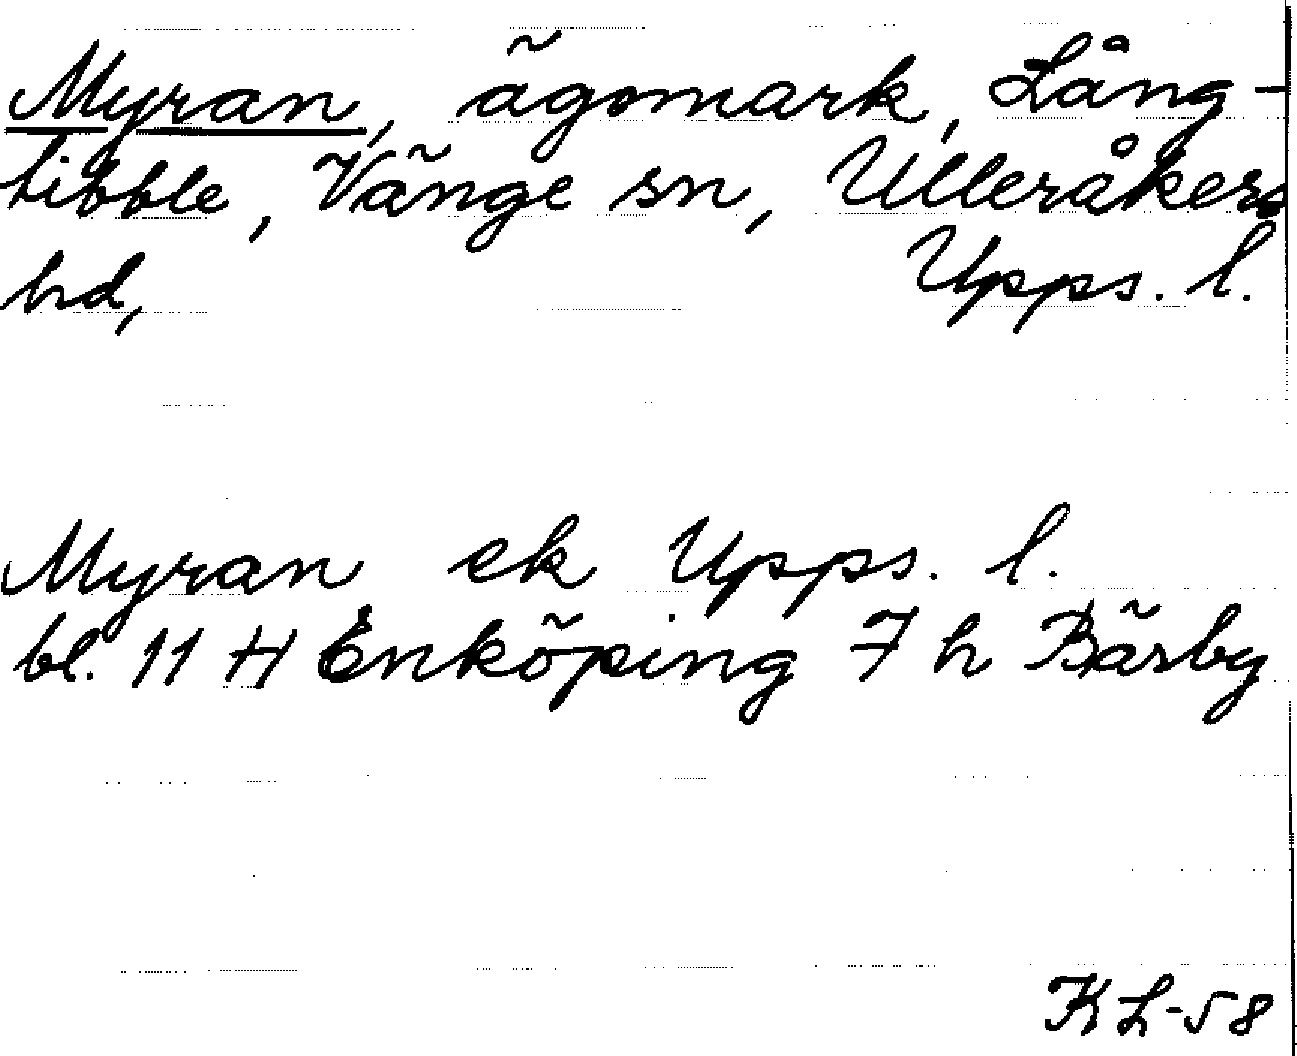 Myran, ägomark, Lång-
tibble, Vänge sn, Ulleråkers
hd, Upps. l.
Myran ek Upps. l.
bl. 11 H Enköping 7 h Bärby
KL-58